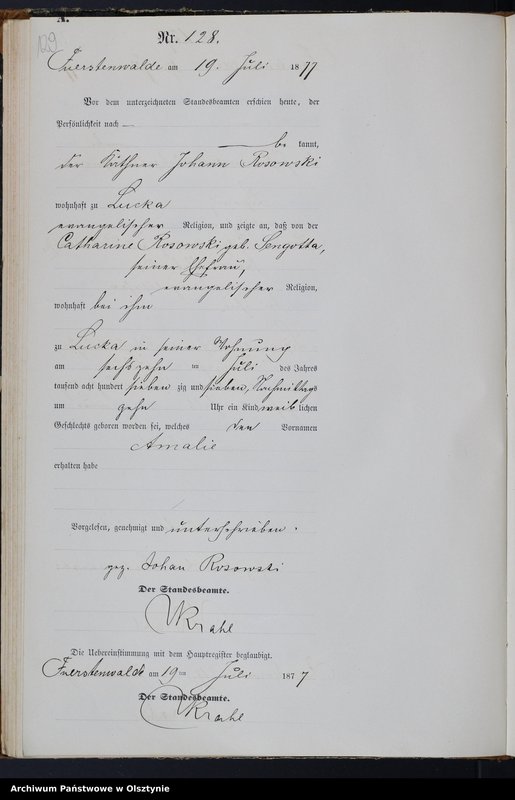 A.
129
Nr. 128.
Fuerstenwalde am 19. Juli 1877
Vor dem unterzeichneten Standesbeamten erschien heute, der
Persönlichkeit nach —
— be kannt,
der Käthner Johann Rosowski
wohnhaft zu Lucka
evangelischer Religion, und zeigte an, daß von der
Catharine Rosowski geb. Sengotta,
seiner Ehefrau,
evangelischer Religion,
wohnhaft bei ihm
zu Lucka in seiner Wohnung
am sechszehn ten Juli des Jahres
tausend acht hundert sieben zig und sieben, Nachmittags
um zehn Uhr ein Kind weib lichen
Geschlechts geboren worden sei, welches den Vornamen
Amalie
erhalten habe
Vorgelesen, genehmigt und unterschrieben.
gez. Johan Rosowski
Der Standesbeamte.
Krahl
Die Uebereinstimmung mit dem Hauptregister beglaubigt.
Fuerstenwalde am 19 ten Juli 1877
Der Standesbeamte.
Krahl
Archiwum Państwowe w Olsztynie